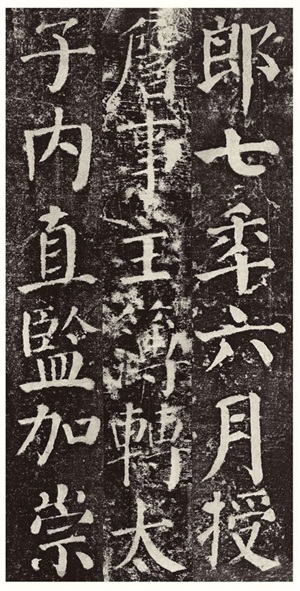 郎七年六月授
詹事主簿轉太
子内直監加崇